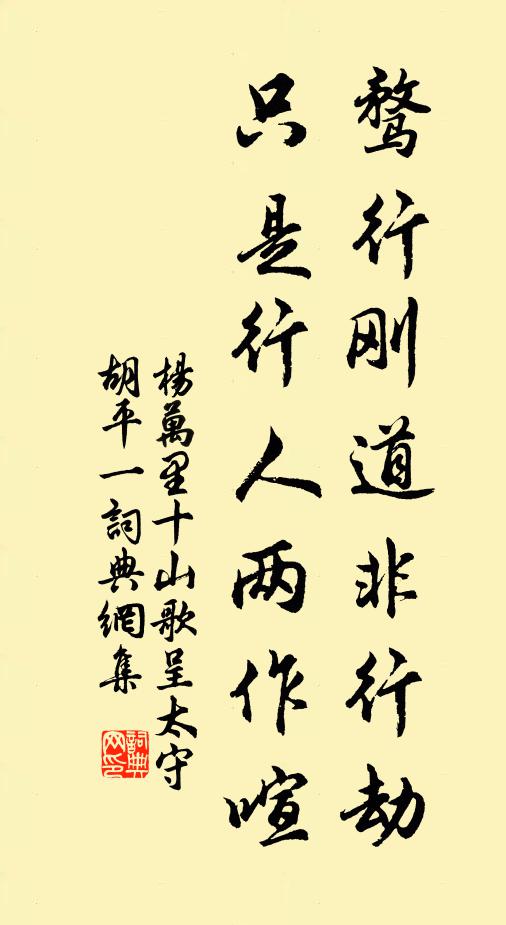 鹜行刚道非行劫
只是行人两作喧
楊萬里十山歌呈太守
胡平一詞典網集
詞典网印